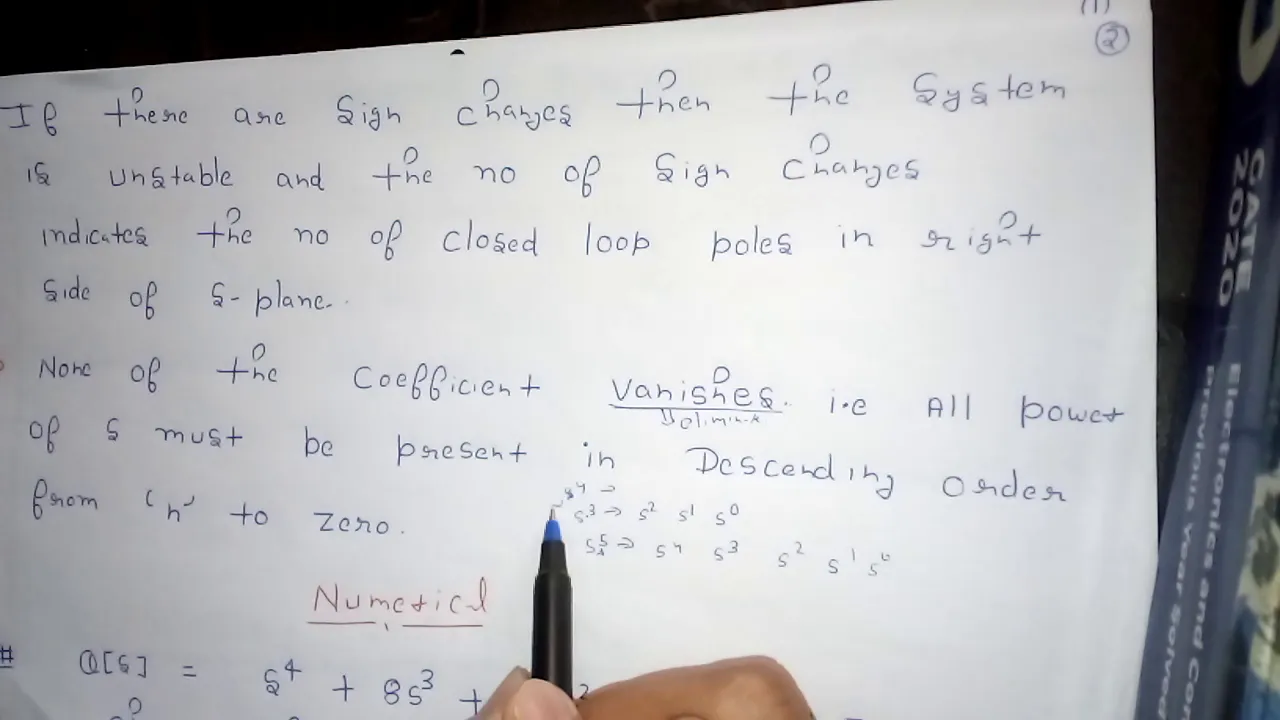 ②
If there are sign changes then the system
is unstable and the no of sign changes
indicates the no of closed loop poles in right
side of s-plane.
None of the coefficient vanishes. i.e All power
of s must be present in Descending order
from 'n' to zero.
s4 →
s3 → s2 s1 s0
s5 → s4 s3 s2 s1 s0
Numerical
# Q[s] = s4 + 8s3 +
GATE 2020
Electronics and Com
Previous Year Solved